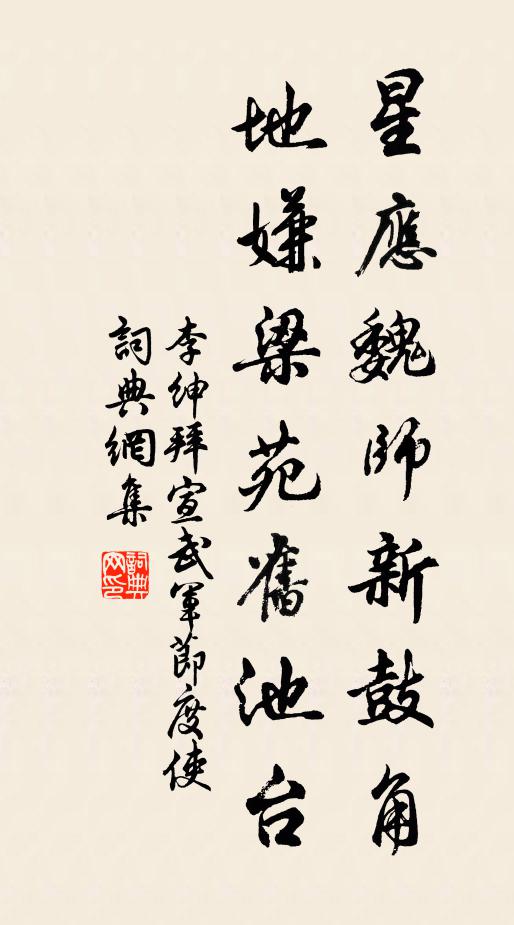 星應魏師新鼓角
地嫌梁苑舊池台
李紳拜宣武軍節度使
詞典網集
詞典
网印